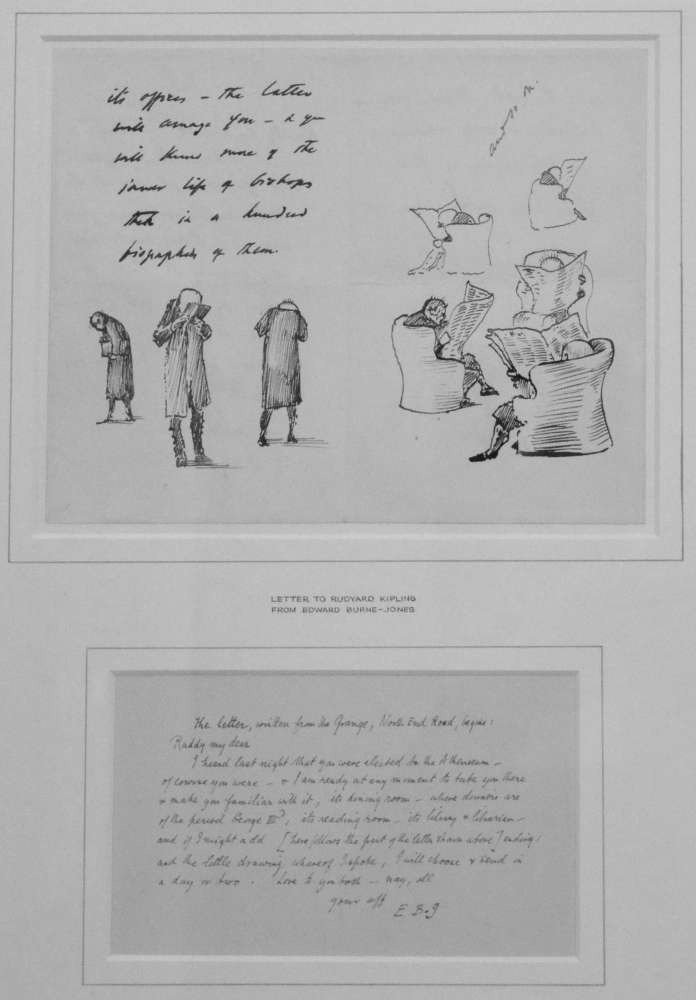 its offices – the latter
will amaze you – & you
will know more of the
inner life of bishops
than in a hundred
biographies of them.
and so on.
LETTER TO RUDYARD KIPLING
FROM EDWARD BURNE-JONES
The letter, written from the Grange, North End Road, begins:
Ruddy my dear
I heard last night that you were elected to the Athenaeum –
of course you were – & I am ready at any moment to take you there
& make you familiar with it, its dining room – where dinners are
of the period George IIIrd, its reading room – its library & librarian –
and if I might add [here follows the part of the letter shown above] ending:
and the little drawing, whereof I spoke, I will choose & send in
a day or two. Love to you both – nay, all
your aff
E. B-J